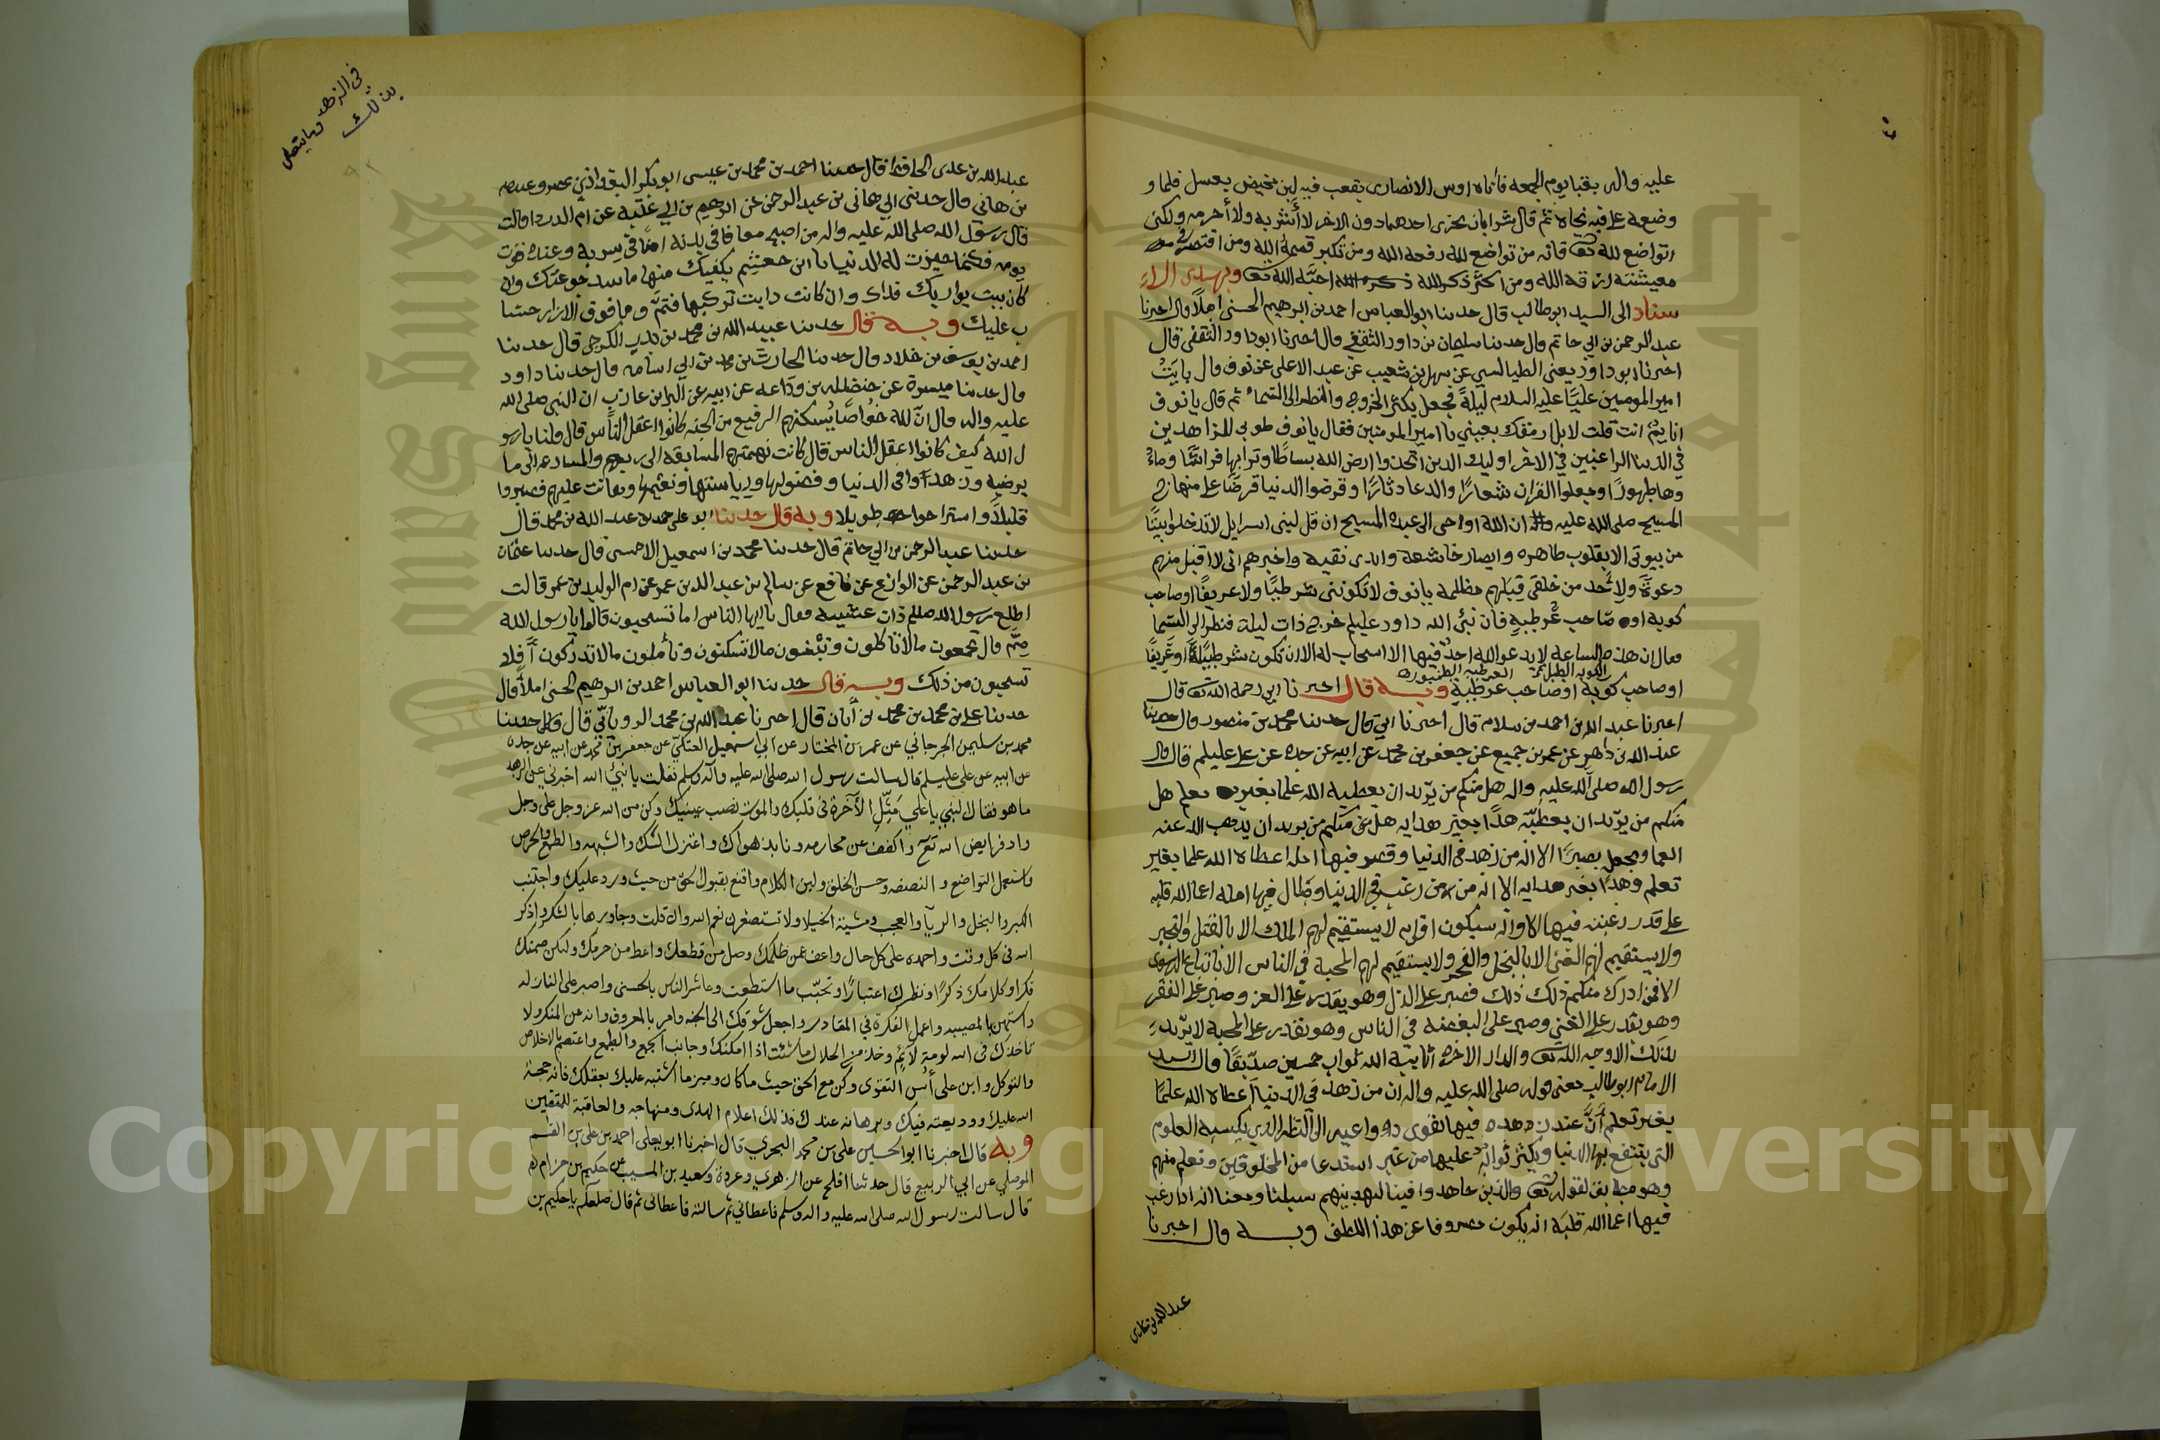 عليه واله بقبا يوم الجمعه فأتاه اوس الانصاري بقعب فيه لبن مخيض بعسل فلما و
وضعه على فيه نحاه ثم قال شرابان يجزى احدهما دون الاخر لا أشربه ولا أحرمه ولكني
اتواضع لله تعالى فانه من تواضع لله رفعه الله ومن تكبر قصمه الله ومن اقتصد في
معيشته رزقه الله ومن اكثر ذكر الله احبه الله تعالى وبهذى الا
سناد الى السيد ابو طالب قال حدثنا ابو العباس احمد بن ابرهيم الحسني املاً قال اخبرنا
عبد الرحمن بن ابي حاتم قال حدثنا سليمان بن داود الثقفي قال اخبرنا ابو داود الثقفي قال
اخبرنا ابو داود يعني الطيالسي عن سهل بن شعيب عن عبد الاعلى عن نوف قال بايَتُّ
امير المومنين عليًا عليه السلام ليلة فجعل يكثر الخروج والنظر الى السماء ثم قال يا نوف
انايم انت قلت لا بل ارمقك بعيني يا امير المومنين فقال يا نوف طوبى للزاهدين
في الدنيا الراغبين في الاخره اوليك الذين اتخذوا ارض الله بساطا وترابها فراشًا وماء
وها طهورًا وجعلوا القران شعارًا والدعا دثارًا وقرضوا الدنيا قرضًا على منهاج
المسيح صلى الله عليه ان الله اوحى الى عبده المسيح ان قل لبني اسرايل لا تدخلوا بيتًا
من بيوتي الا بقلوب طاهره وابصار خاشعة وايدي نقيه واخبرهم اني لا اقبل منهم
دعوة ولأحد من خلقي قِبَلهم مظلمه يا نوف لا تكونن شرطيًا ولا عريفًا او صاحب
كوبه او صاحب عُرطبه فان نبي الله داود عليلم خرج ذات ليلة فنظر الى السما
فقال ان هذه الساعه لا يدعو الله احدٌ فيها الا استجاب له الا ان تكون شرطيًا او عريفًا
الكوبه الطبل العرطبه الطنبور
او صاحب كوبة او صاحب عرطبةٍ وبه قال اخبرنا ابي رحمه الله تعالى قال
اخبرنا عبد الله بن احمد بن سلام قال اخبرنا ابي قال حدثنا محمد بن منصور قال حدثنا
عبد الله بن داهر عن عمرو بن جميع عن جعفر بن محمد عن ابيه عن جده عن علي عليلم قال قال
رسول الله صلى الله عليه واله هل منكم من يريد ان يعطيه الله علما بغير تعلم هل
منكم من يريد ان يعطيه هدًا بغير هدايه هل منكم من يريد ان يذهب الله عنه
العما ويجعله بصيرًا الا انه من زهد في الدنيا وقصر فيها امله اعطاه الله علما بغير
تعلم وهدًا بغير هدايه الا انه من رغب في الدنيا وطال فيها امله اعما الله قلبه
على قدر رغبته فيها الا وانه سيكون اقوام لا يستقيم لهم الملك الا بالقتل والتجبر
ولا يستقيم لهم الغنى الا بالبخل والفجر ولا يستقيم لهم المحبة في الناس الا باتباع الهوى
الا فمن ادرك منكم ذلك فصبر على الذل وهو يقدر على العز وصبر على الفقر
وهو يقدر على الغنى وصبر على البغضه في الناس وهو يقدر على المحبة لا يريد
بذلك الا وجه الله تعالى والدار الاخره اثابه الله ثواب خمسين صدّيقًا قال السيد
الامام ابو طالب معنى قوله صلى الله عليه واله ان من زهد في الدنيا أعطاه الله علمًا
بغير تعلم أنَّ عند زهده فيها تقوى دواعيه الى النظر الذي يكسبه العلوم
التي ينتفع بها الدنيا ويكثر ثوابه عليها من غير استدعا من المخلوقين وتعلم منهم
وهو مطابق لقوله تعالى والذين جاهدوا فينا لنهدينهم سبلنا ومعنا انه اذا رغب
فيها اعما الله قلبَه انه يكون مصروفا عن هذا اللطف وبه قال اخبرنا
عبد الله بن عدي
في الزهد وما يتصل
بذلك
عبد الله بن عدي الحافظ قال حدثنا احمد بن محمد بن عيسى ابو بكر البغدادي
بن هاني قال حدثني ابي هاني بن عبد الرحمن عن ابرهيم بن ابي عَبلة عن ام الدردا قالت
قال رسول الله صلى الله عليه واله من اصبح معافا في بدنه امنًا في سربه وعنده قوت
يومه فكأنما حيزت له الدنيا يا ابن جعشم يكفيك منها ما سد جوعتك وان
كان بيت يواريك فذاك وان كانت دابت تركبها فنعم وما فوق الازار حسا
ب عليك وبه قال حدثنا عبيد الله بن محمد بن بدر الكرجي قال حدثنا
احمد بن يوسف بن خلاد قال حدثنا الحارث بن محمد بن ابي اسامه قال حدثنا داود
قال حدثنا ميسرة عن حنضله بن وداعه عن ابيه عن البرا بن عازب ان النبي صلى الله
عليه واله قال انّ لله خواصًا يُسكنهم الرفيع من الجنه كانوا اعقل الناس قال قلنا يا رسو
ل الله كيف كانوا اعقل الناس قال كانت نهمتهم المسابقه الى ربهم والمسارعه الى ما
يرضيه وزهدوا في الدنيا وفضولها ورياستها ونعيمها وهانت عليهم فصبروا
قليلًا واستراحوا طويلا وبه قال حدثنا ابو علي حمد بن عبد الله بن محمد قال
حدثنا عبد الرحمن بن ابي حاتم قال حدثنا محمد بن اسمعيل الاحمسي قال حدثنا عثمان
بن عبد الرحمن عن الوازع عن نافع عن سالم بن عبد الله بن عمر عن ام الوليد بن عمر قالت
اطلع رسول الله صللم ذات عشيه فقال يا ايها الناس اما تستحيون قالوا يا رسول الله
مِمَّ قال تجمعون مالا تاكلون وتبْنون مالا تسكنون وتأملون مالا تدركون أفلا
تستحيون من ذلك وبه قال حدثنا ابو العباس احمد بن ابرهيم الحسني املاً قال
حدثنا علي بن محمد بن محمد بن أبان قال اخبرنا عبد الله بن محمد الروياني قال حدثنا
محمد بن سليمن الجرجاني عن عمر بن المختار عن ابي اسمعيل العتكي عن جعفر بن محمد عن ابيه عن جده
عن ابيه عن علي عليلم قال سالت رسول الله صلى الله عليه واله وسلم فقلت يا نبيَّ الله اخبرني عن الزهد
ما هو فقال النبي يا علي مَثِّل الآخرة في قلبك والموت نصب عينيك وكن من الله عز وجل على وجل
واد فرايض الله تعالى واكفف عن محارمه ونابذ هواك واعتزل الشك والشبهه والطمع والحرص
واستعمل التواضع والنصفه وحسن الخلق ولين الكلام واقنع بقبول الحق من حيث ورد عليك واجتنب
الكبر والبخل والريا والعجب ومشية الخيلا ولا تستصغرن نعم الله وان قلت وجاورها بالشكر واذكر
الله في كل وقت واحمده على كل حال واعف عمن ظلمك وصل من قطعك واعط من حرمك وليكن صمتك
فكرا وكلامك ذكرًا ونظرك اعتبارًا وتحبّب ما استطعت وعاشر الناس بالحسنى واصبر على النازله
واستهن بالمصيبه واعمل الفكرة في المعاد واجعل شوقك الى الجنه وامر بالمعروف وانه عن المنكر ولا
تاخذك في الله لومة لائم وخذ من الحلال ما شئت اذا امكنك وجانب الجمع والطمع واعتصم بالاخلاص
والتوكل وابن على أُسّ التقوى وكن مع الحق حيث ما كان وميز ما اشتبه عليك بعقلك فانه حجة
الله عليك ووديعته فيك وبرهانه عندك فذلك اعلام الهدى ومنهاجه والعاقبة للمتقين
وبه قال اخبرنا ابو الحسين علي بن محمد البحري قال اخبرنا ابو يعلى احمد بن علي بن
الموصلي عن ابي الربيع قال حدثنا افلح عن الزهري وعروة وسعيد بن المسيب عن حكيم بن حزام
قال سالت رسول الله صلى الله عليه واله وسلم فاعطاني ثم سالته فاعطاني ثم قال صلعلم يا حكيم بن
Copyright © King Saud University
جامعة الملك سعود
King Saud University
1957